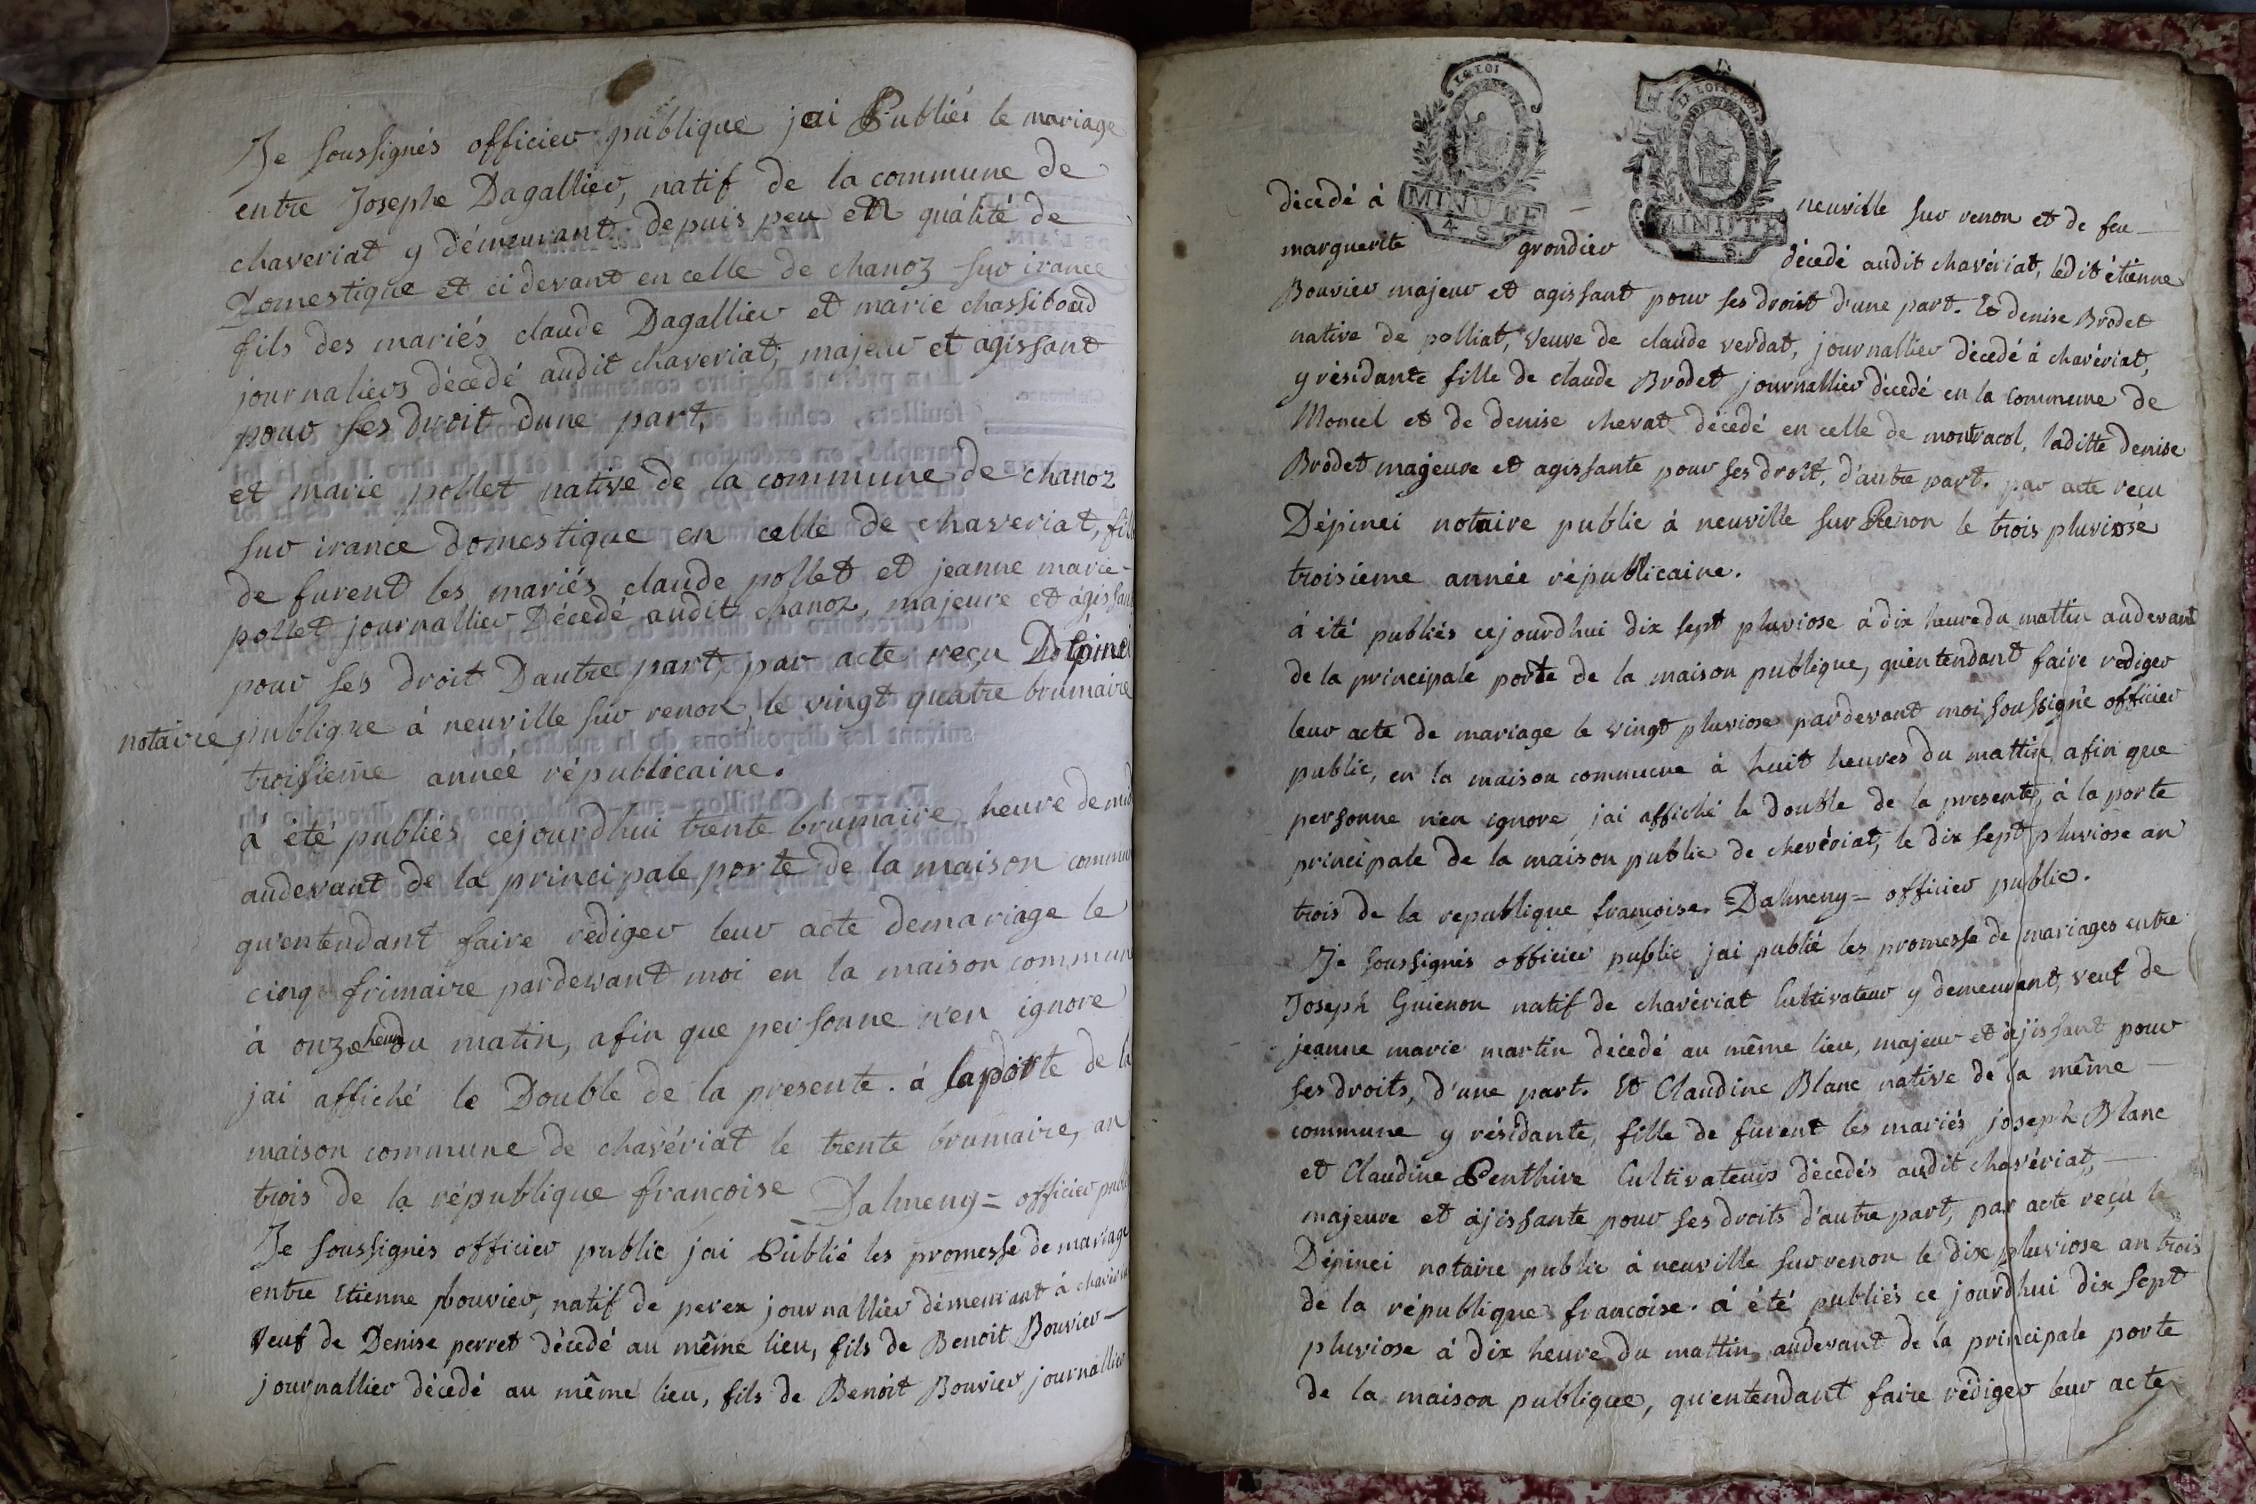 Je soussignés officier publique jai Publiés le mariage
entre Josephe Dagallier, natif de la commune de
chaveriat y démeurant, depuis peu en qualité de
Domestique et ci devant en celle de chanoz sur irance
fils des mariés claude Dagallier et marie chassiboud
journaliers décedé audit chaveriat, majeur et agissant
pour ses droit dune part,
et marie pollet native de la commune de chanoz
sur irance domestique en celle de chaveriat, fille
de furent les mariés claude pollet et jeanne marie
pollet journallier Décedé audit chanoz, majeure et agissan
pour ses droit Dautre part, par acte reçu Dépinei
notaire publique à neuville sur renon, le vingt quatre brumaire
troisieme année républicaine.
à été publiés cejourdhui trente brumaire heure de mid
audevant de la principale porte de la maison commun
qu'entendant faire rédiger leur acte demariage le
cinq frimaire pardevant moi en la maison commun
à onze heure du matin, afin que personne n'en ignore
jai affiché le Double de la presente. à la porte de la
maison commune de chavériat le trente brumaire, an
trois de la république francoise Dalmeny = officier publi
Je soussignés officier public jai Publié les promesse de mariage
entre Etienne bouvier, natif de perex journallier démeurant à chaveria
veuf de Denise perret décedé au même lieu, fils de Benoit Bouvier —
journallier décedé au même lieu, fils de Benoit Bouvier journallier
LA LOI
MINUTE
4 S.
LA LOI
MINUTE
4 S.
décedé à neuville sur renon et de feu —
marguerite grondier décedé audit chavériat, ledit étienne
Bouvier majeur et agissant pour ses droit d'une part. Et denise Brodet
native de polliat, veuve de claude verdat, journallier décedé à chavériat,
y résidante fille de claude Brodet journallier décedé en la commune de
Moncel et de denise chevat décedé en celle de montracol, laditte denise
Brodet majeure et agissante pour ses droit, d'autre part. par acte reçu
Dépinei notaire public à neuville sur Renon le trois pluviose
troisieme année républicaine.
à été publiés cejourdhui dix sept pluviose à dix heure du mattin audevant
de la principale porte de la maison publique, qu'entendant faire rediger
leur acte de mariage le vingt pluviose pardevant moi soussigné officier
public, en la maison commune à huit heures du mattin afin que
personne n'en ignore jai affiché le double de la presente, à la porte
principale de la maison public de chevériat, le dix sept pluviose an
trois de la republique francoise. Dalmeny = officier public.
Je soussignés officier public jai publié les promesse de mariages entre
Joseph Guienon natif de chavériat Cultivateur y demeurant, veuf de
jeanne marie martin décedé au même lieu, majeur et ajissant pour
ses droits, d'une part. Et Claudine Blanc native de la même —
commune y résidante, fille de furent les mariés joseph Blanc
et Claudine Penthire Cultivateurs décedés audit chavériat, —
majeure et ajissante pour ses droits d'autre part, par acte reçu le
Dépinei notaire public à neuville sur renon le dix pluviose an trois
de la république francoise. à été publiés ce jourdhui dix sept
pluviose à dix heure du mattin audevant de la principale porte
de la maison publique, qu'entendant faire rédiger leur acte